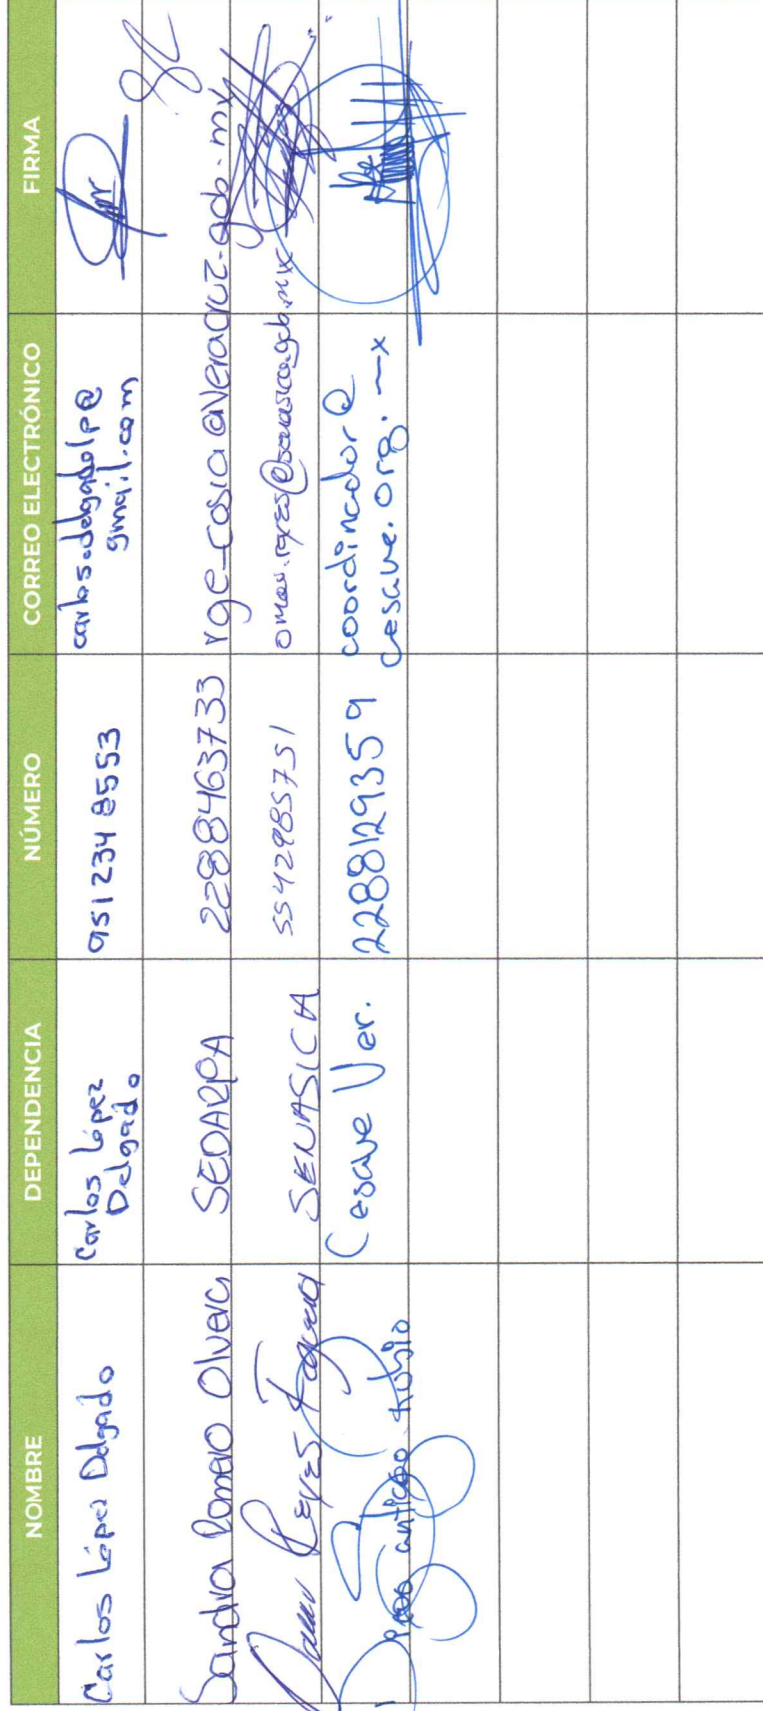 NOMBRE DEPENDENCIA NÚMERO CORREO ELECTRÓNICO FIRMA
Carlos López Delgado Carlos López 951 234 8553 carlos.delgadolp@
Delgado gmail.com
Sandra Romero Olvera SEDARPA 2288463733 rge_cosia@veracruz.gob.mx
Omar Reyes SENASICA 5542985751 omar.reyes@senasica.gob.mx
Diego Rubio Cesave Ver. 2288129359 coordinador@
cesave.org.mx